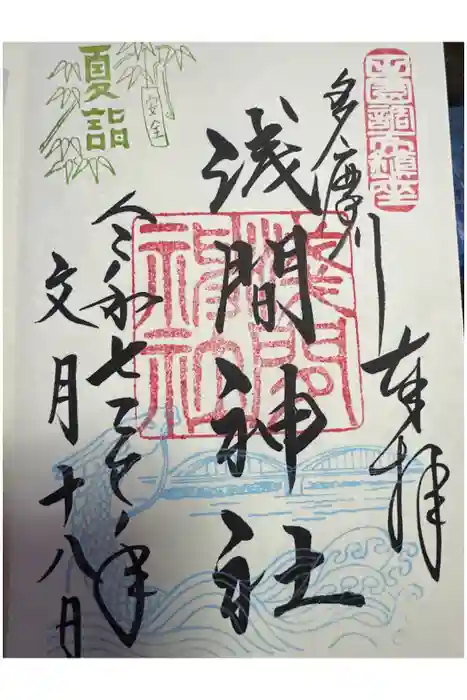 多摩川
奉拝
浅間神社
浅間神社
令和七乙巳ノ年
文月十八日
夏詣
安全